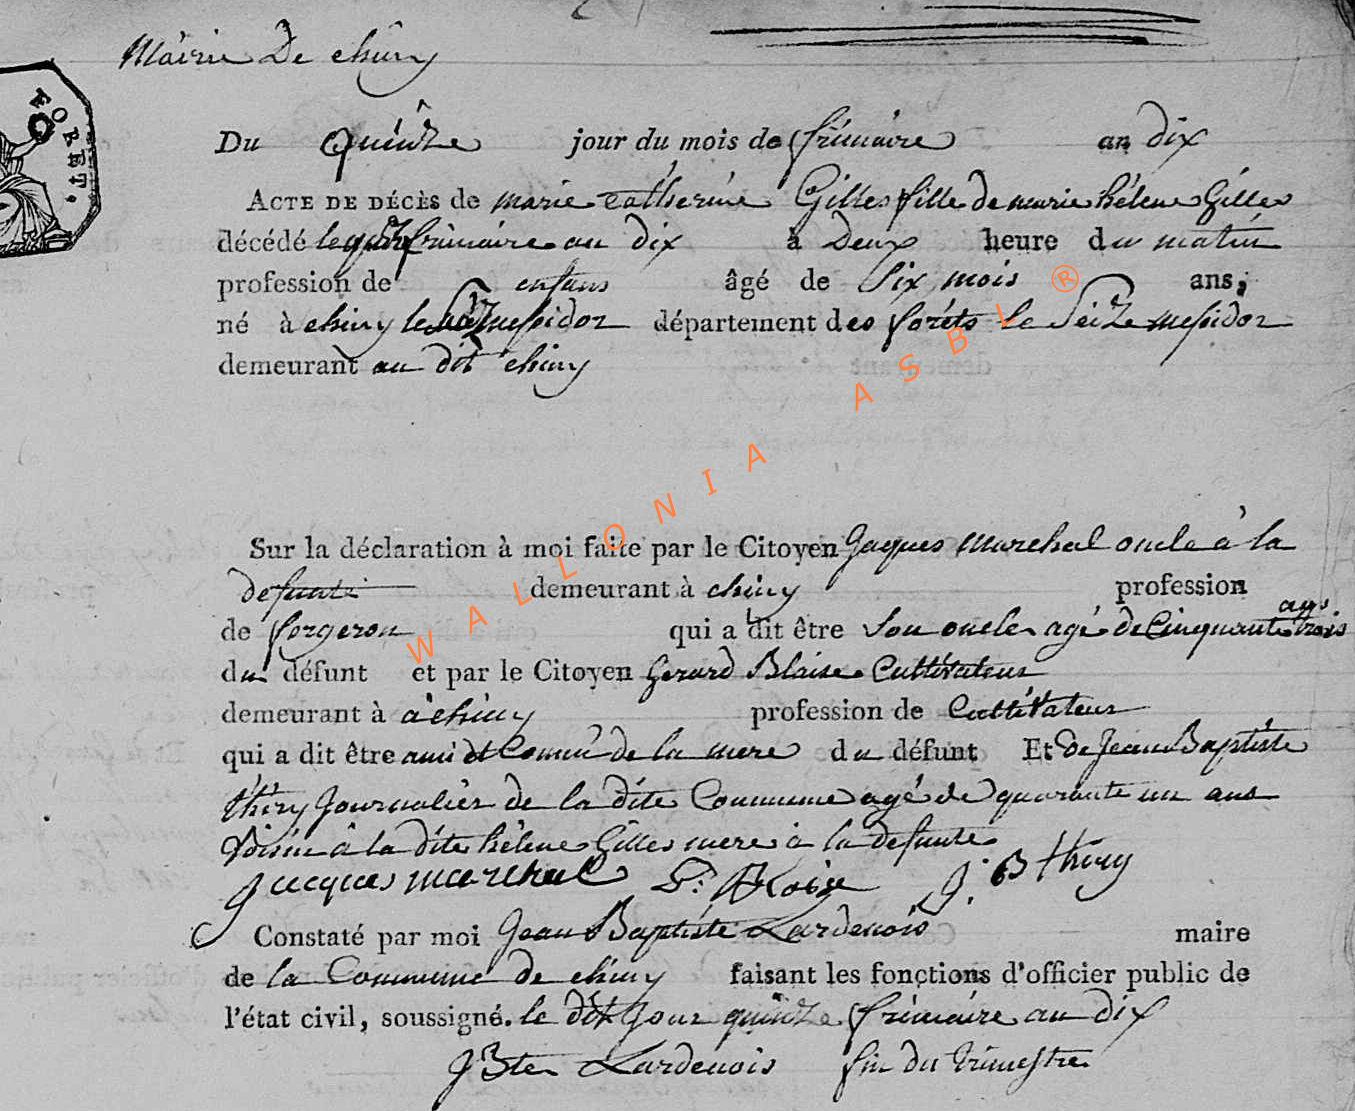 Mairie De chiny
FORET.
Du Quinze jour du mois de frimaire an dix
ACTE DE DÉCÈS de marie Catherine Gilles fille de marie hélene Gilles
décédé le frimaire an dix à Deux heure du matin
profession de enfans âgé de Six mois ans,
né à chiny le messidor département des foréts le Seize messidor
demeurant au dit chiny
WALLONIA ASBL ®
Sur la déclaration à moi faite par le Citoyen Jaques Marchal oncle à la
defunte demeurant à chiny profession
de forgeron qui a dit être Son oncle agé de Cinquante trois ans
du défunt et par le Citoyen Gerard Blaise Cultivateur
demeurant à à chiny profession de Cultivateur
qui a dit être ami et Connu de la mere du défunt Et de Jean Baptiste
thiry Journalier de la dite Commune agé de quarante un ans
Voisin à la dite hélene Gilles mere à la defunte
Jacques marchal G: Blaise J. B thiry
Constaté par moi Jean Baptiste Lardenois maire
de la Commune de chiny faisant les fonctions d'officier public de
l'état civil, soussigné. le dit Jour quinze frimaire an dix
JBte Lardenois fin du trimestre